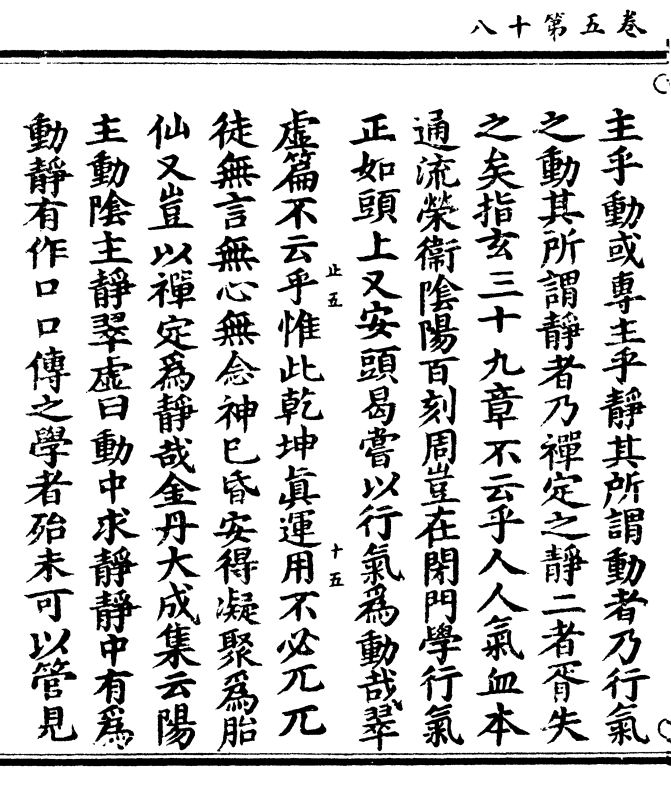 卷五第十八
主乎動或專主乎靜其所謂動者乃行氣
之動其所謂靜者乃禪定之靜二者胥失
之矣指玄三十九章不云乎人人氣血本
通流榮衞隂陽百刻周豈在閉門學行氣
正如頭上又安頭曷嘗以行氣爲動哉翠
虛篇不云乎惟此乾坤眞運用不必兀兀
徒無言無心無念神已昏安得凝聚爲胎
仙又豈以禪定爲靜哉金丹大成集云陽
主動隂主靜翠虛曰動中求靜靜中有爲
動靜有作口口傳之學者殆未可以管見
止五
十五